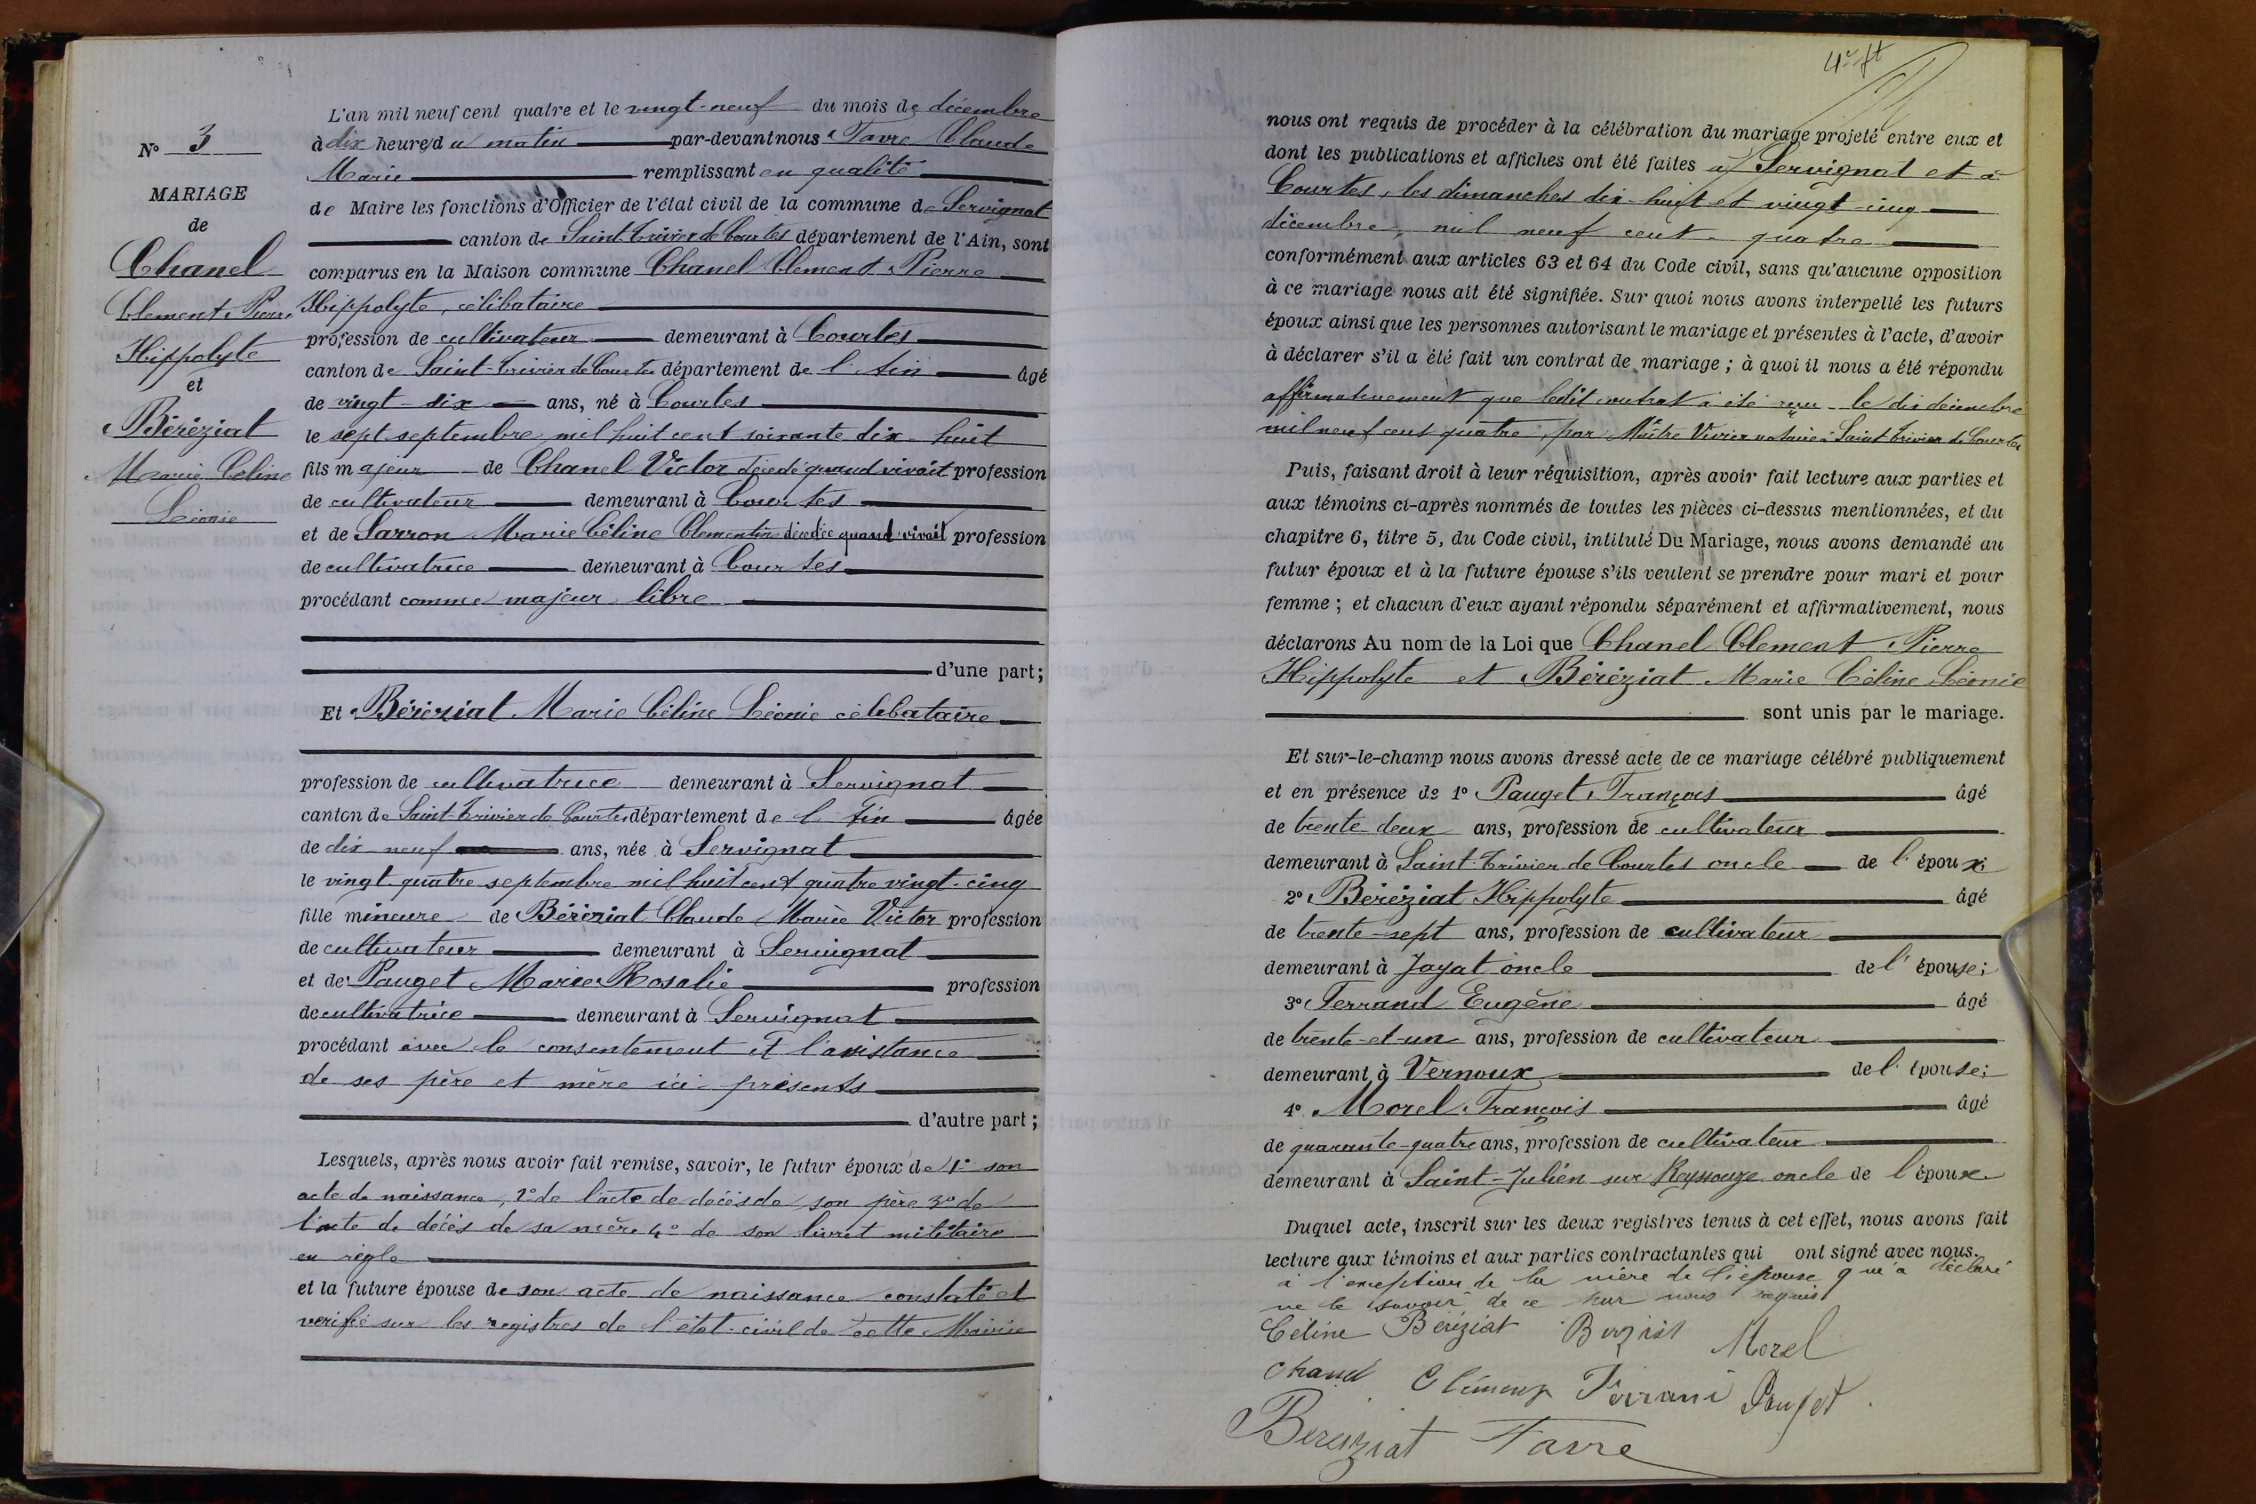 N° 3
MARIAGE
de
Chanel
Clement Pierre
Hippolyte
et
Béréziat
Marie Céline
Léonie
L'an mil neuf cent quatre et le vingt-neuf du mois de décembre
à dix heure du matin par-devant nous Favre Claude
Marie remplissant en qualité
de Maire les fonctions d'Officier de l'état civil de la commune de Servignat
canton de Saint-Trivier de Courtes département de l'Ain, sont
comparus en la Maison commune Chanel Clement Pierre
Hippolyte, célibataire
profession de cultivateur demeurant à Courtes
canton de Saint-Trivier de Courtes département de l'Ain âgé
de vingt-six ans, né à Courtes
le sept septembre mil huit cent soixante dix-huit
fils majeur de Chanel Victor décédé quand vivait profession
de cultivateur demeurant à Courtes
et de Sarron Marie Céline Clementine décédée quand vivait profession
de cultivatrice demeurant à Courtes
procédant comme majeur libre
d'une part;
Et Béréziat Marie Céline Léonie célibataire
profession de cultivatrice demeurant à Servignat
canton de Saint-Trivier de Courtes département de l'Ain âgée
de dix neuf ans, née à Servignat
le vingt-quatre septembre mil huit cent quatre vingt-cinq
fille mineure de Béréziat Claude Marie Victor profession
de cultivateur demeurant à Servignat
et de Pauget Marie Rosalie profession
de cultivatrice demeurant à Servignat
procédant avec le consentement et l'assistance
de ses père et mère ici présents
d'autre part;
Lesquels, après nous avoir fait remise, savoir, le futur époux de 1° son
acte de naissance, 2° de l'acte de décès de son père 3° de
l'acte de décès de sa mère 4° de son livret militaire
en règle
et la future épouse de son acte de naissance constaté et
vérifié sur les registres de l'état-civil de cette Mairie
4e ft
nous ont requis de procéder à la célébration du mariage projeté entre eux et
dont les publications et affiches ont été faites à Servignat et à
Courtes, les dimanches dix-huit et vingt-cinq
décembre, mil neuf cent-quatre
conformément aux articles 63 et 64 du Code civil, sans qu'aucune opposition
à ce mariage nous ait été signifiée. Sur quoi nous avons interpellé les futurs
époux ainsi que les personnes autorisant le mariage et présentes à l'acte, d'avoir
à déclarer s'il a été fait un contrat de mariage; à quoi il nous a été répondu
affirmativement que ledit contrat a été reçu le dix décembre
mil neuf cent quatre, par Maître Vivier notaire à Saint Trivier de Courtes
Puis, faisant droit à leur réquisition, après avoir fait lecture aux parties et
aux témoins ci-après nommés de toutes les pièces ci-dessus mentionnées, et du
chapitre 6, titre 5, du Code civil, intitulé Du Mariage, nous avons demandé au
futur époux et à la future épouse s'ils veulent se prendre pour mari et pour
femme; et chacun d'eux ayant répondu séparément et affirmativement, nous
déclarons Au nom de la Loi que Chanel Clement Pierre
Hippolyte et Béréziat Marie Céline Léonie
sont unis par le mariage.
Et sur-le-champ nous avons dressé acte de ce mariage célébré publiquement
et en présence de 1° Pauget François âgé
de trente-deux ans, profession de cultivateur
demeurant à Saint-Trivier de Courtes oncle de l'époux
2° Béréziat Hippolyte âgé
de trente-sept ans, profession de cultivateur
demeurant à Jayat oncle de l'épouse;
3° Ferrand Eugène âgé
de trente-et-un ans, profession de cultivateur
demeurant à Vernoux de l'épouse;
4° Morel François âgé
de quarante-quatre ans, profession de cultivateur
demeurant à Saint-Julien sur Reyssouze oncle de l'époux
Duquel acte, inscrit sur les deux registres tenus à cet effet, nous avons fait
lecture aux témoins et aux parties contractantes qui ont signé avec nous.
à l'exception de la mère de l'épouse qui a déclaré
ne le savoir de ce par nous requis
Céline Béréziat Beréziat Morel
Chanel Clément Ferrand Pauget
Bereziat Favre